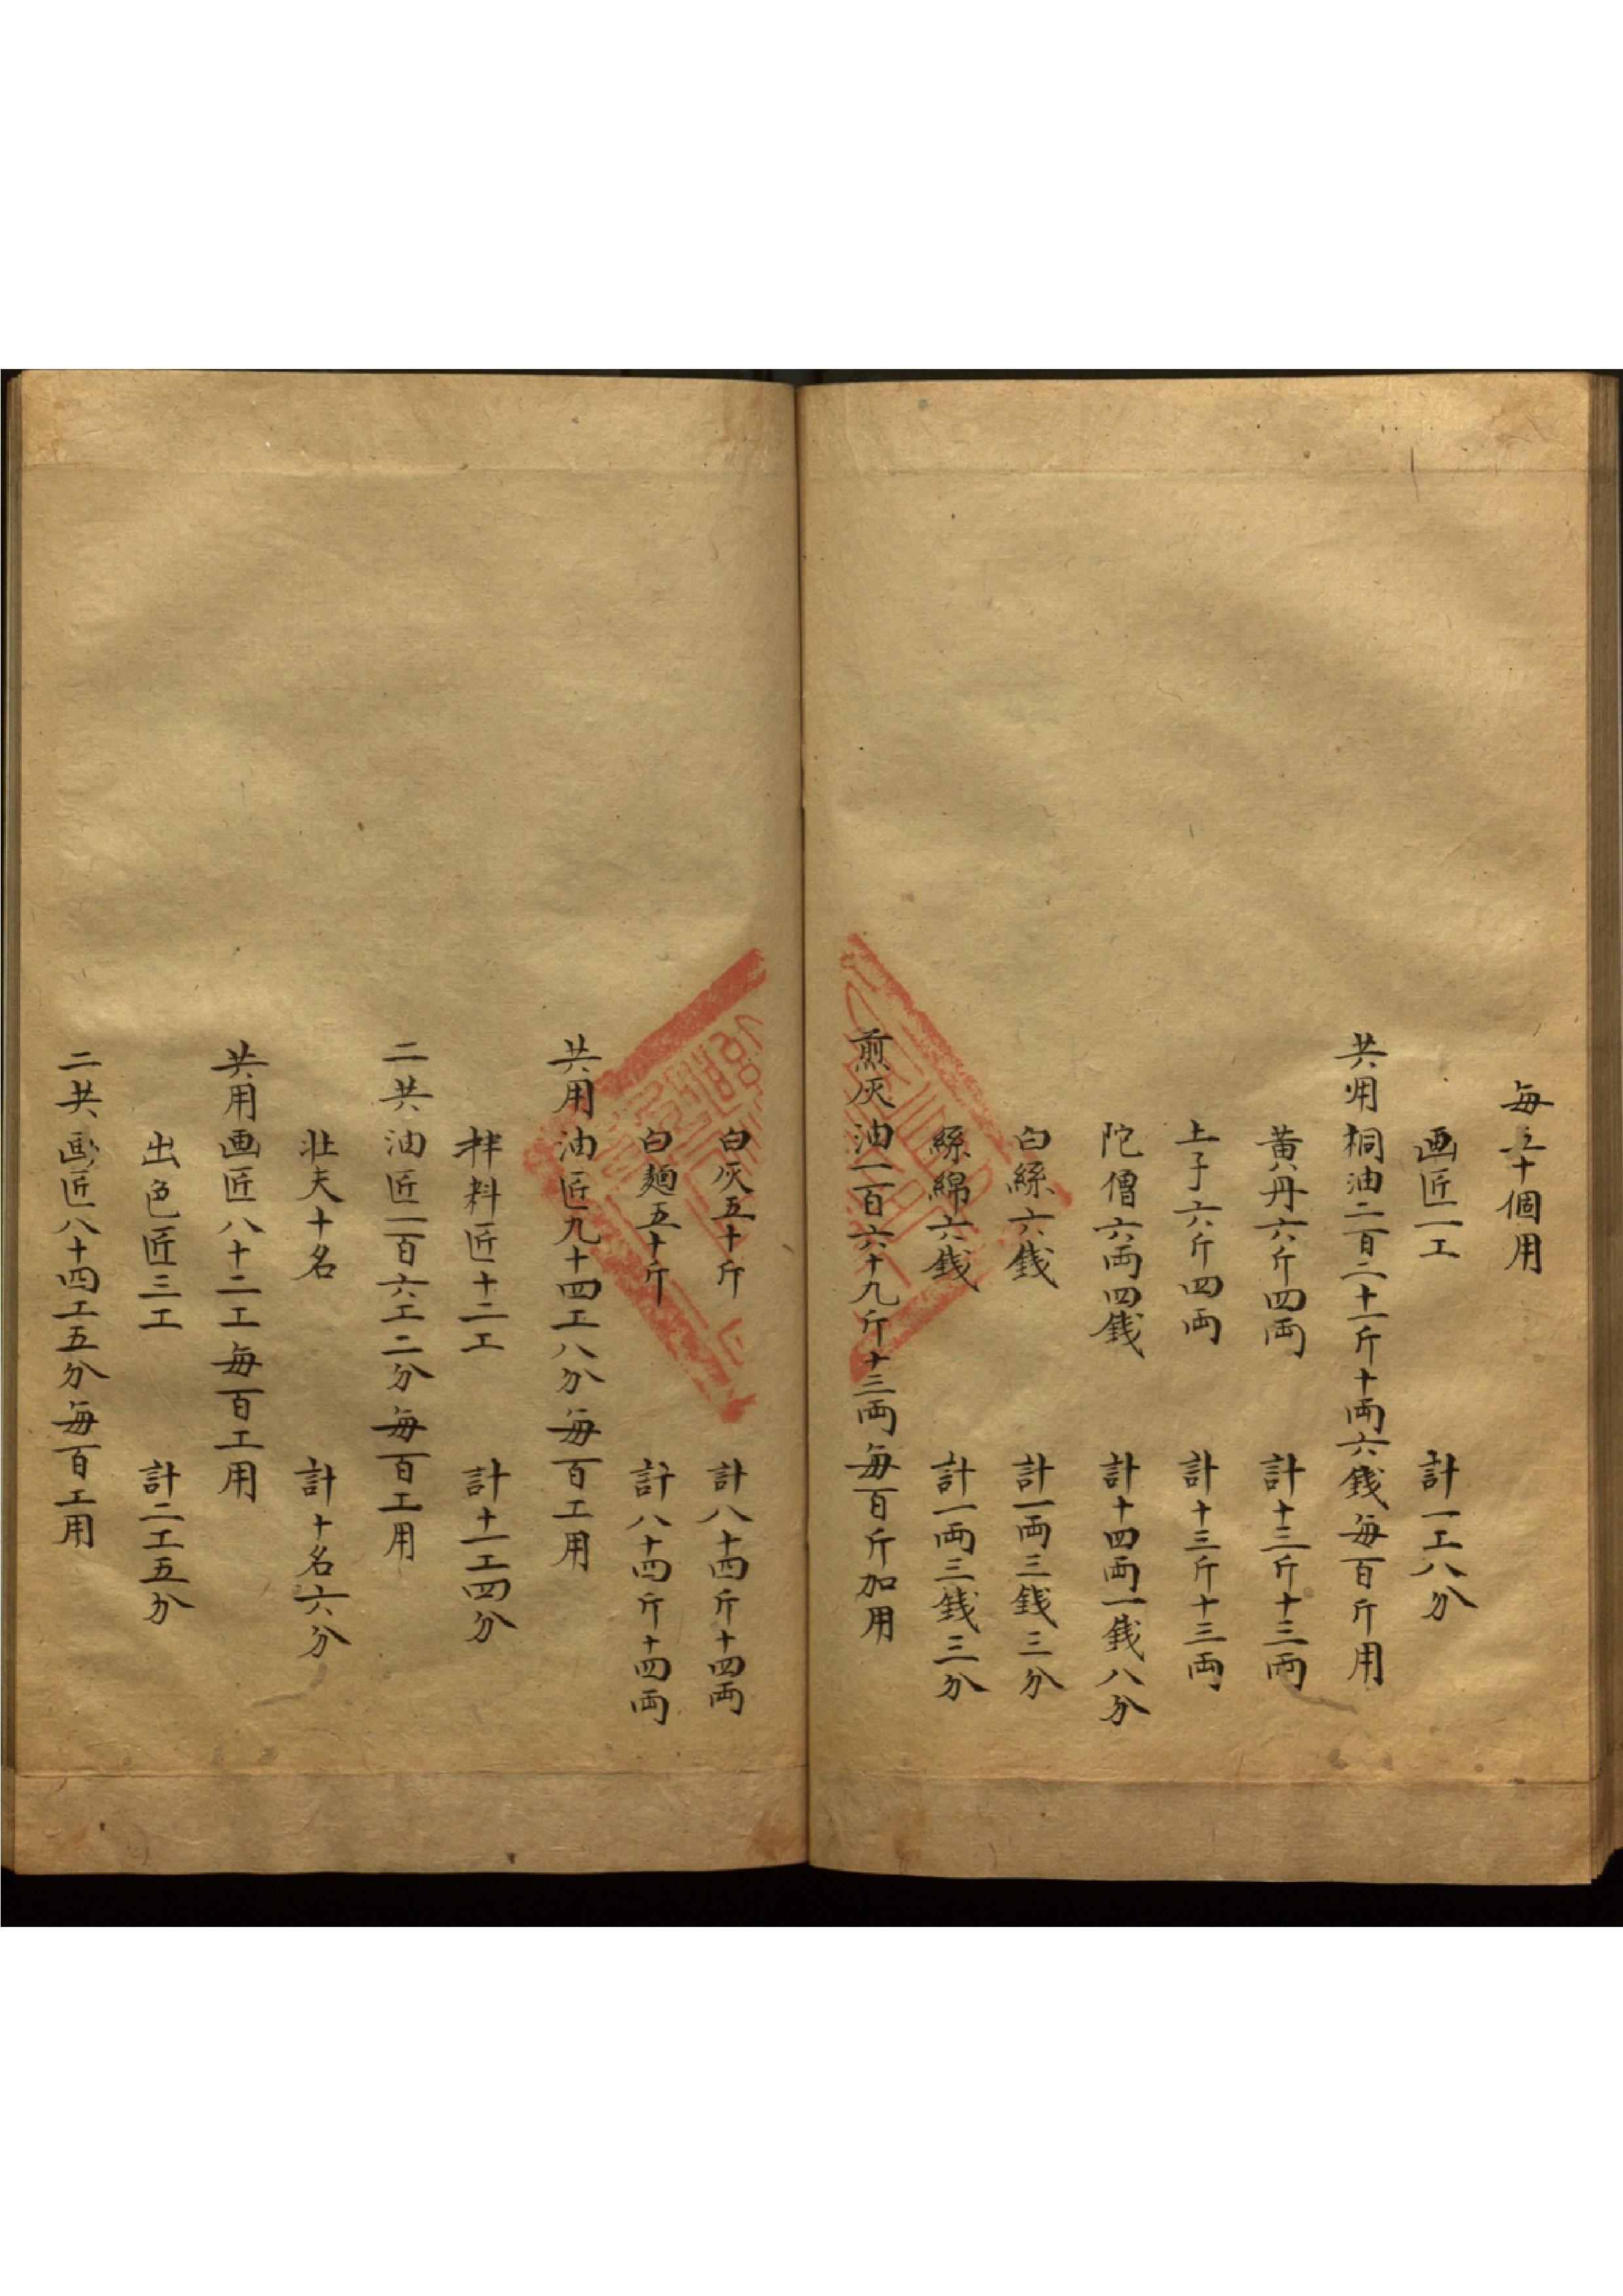 每五十個用
画匠一工 計一工八分
共用桐油二百二十一斤十両六錢每百斤用
黄丹六斤四両 計十三斤十三両
土子六斤四両 計十三斤十三両
陀僧六両四錢 計十四両一錢八分
白絲六錢 計一両三錢三分
絲綿六錢 計一両三錢三分
煎灰油一百六十九斤十三両每百斤加用
白灰五十斤 計八十四斤十四両
白麺五十斤 計八十四斤十四両
共用油匠九十四工八分每百工用
拌料匠十二工 計十一工四分
二共油匠一百六工二分每百工用
壮夫十名 計十名六分
共用画匠八十二工每百工用
出色匠三工 計二工五分
二共画匠八十四工五分每百工用